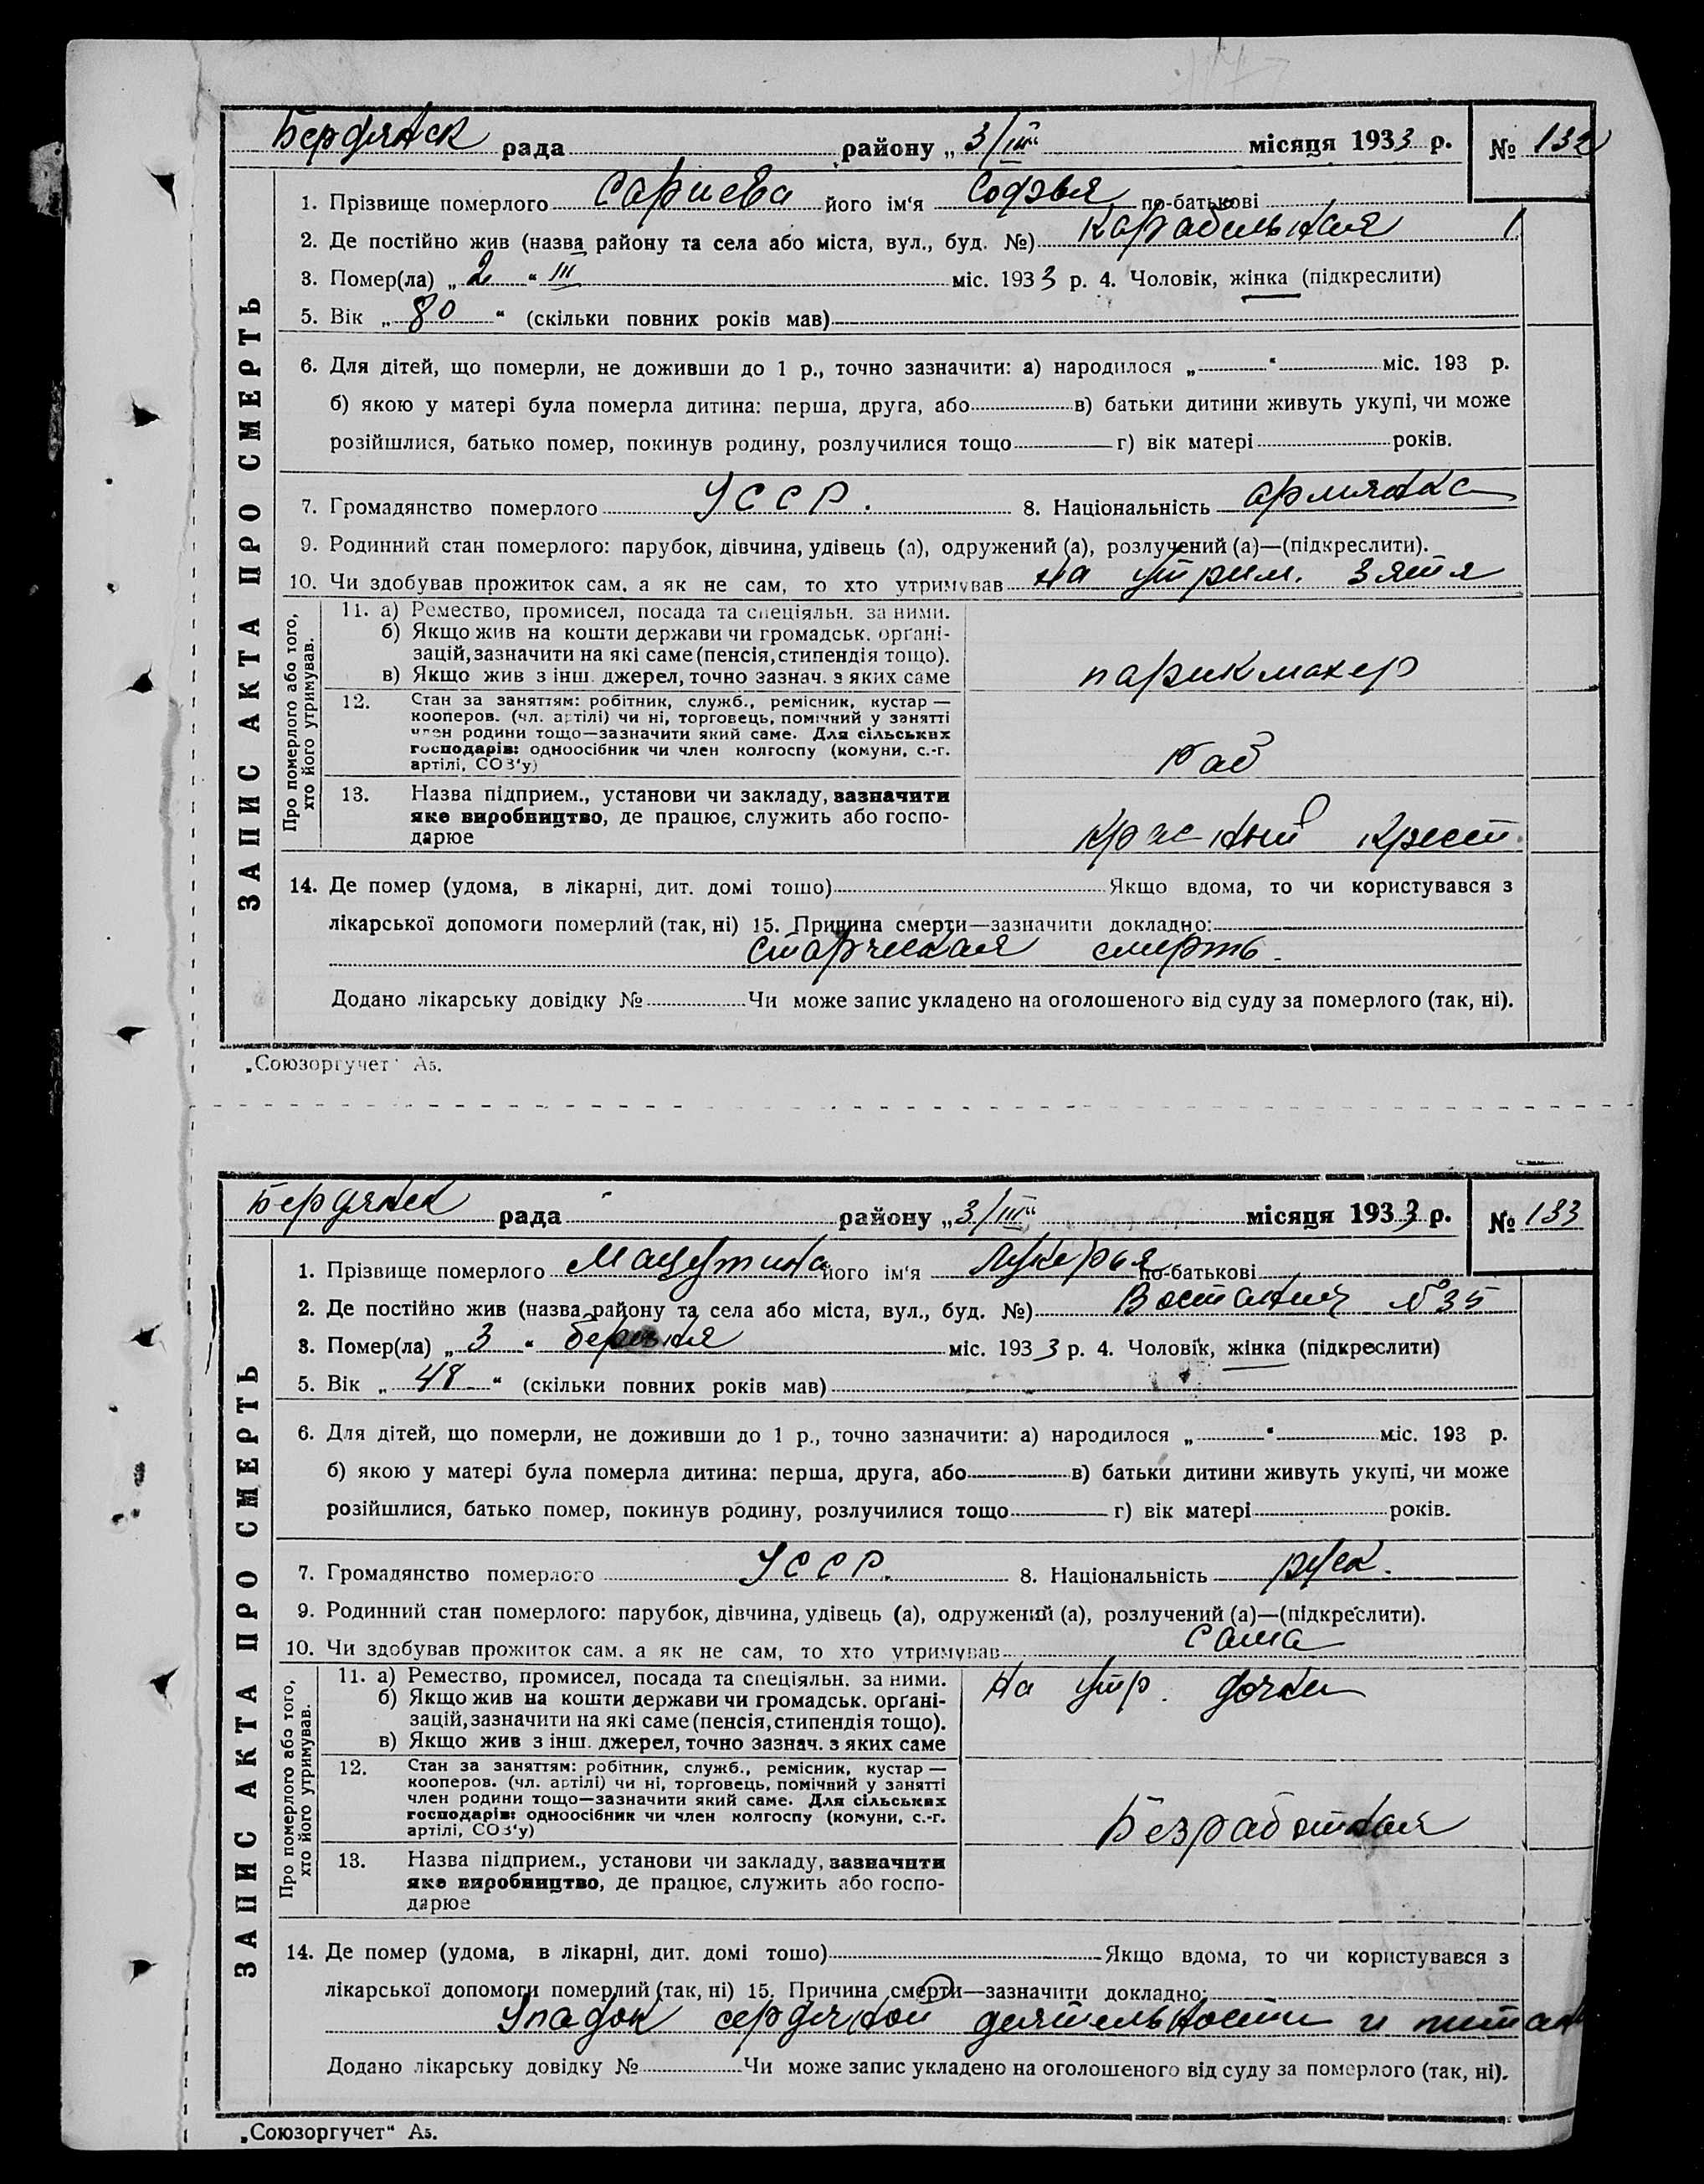 Бердянск рада района „3/III“ місяця 1933 р. № 132
ЗАПИС АКТА ПРО СМЕРТЬ
1. Прізвище померлого Сариева його ім'я Софья по-батькові
2. Де постійно жив (назва району та села або міста, вул., буд. №) Карабельная 1
3. Помер(ла) „2“ III міс. 1933 р. 4. Чоловік, жінка (підкреслити)
5. Вік „80“ (скільки повних років мав)
6. Для дітей, що померли, не доживши до 1 р., точно зазначити: а) народилося „ “ міс. 193 р.
б) якою у матері була померла дитина: перша, друга, або в) батьки дитини живуть укупі, чи може
розійшлися, батько помер, покинув родину, розлучилися тощо г) вік матері років.
7. Громадянство померлого УССР. 8. Національність армянка
9. Родинний стан померлого: парубок, дівчина, удівець (а), одружений (а), розлучений (а)—(підкреслити).
10. Чи здобував прожиток сам, а як не сам, то хто утримував на утрим. зятя
Про померлого або того, хто його утримував.
11. а) Ремество, промисел, посада та спеціяльн. за ними.
б) Якщо жив на кошти держави чи громадськ. орґані-
зацій, зазначити на які саме (пенсія, стипендія тощо).
в) Якщо жив з інш. джерел, точно зазнач. з яких саме парикмахер
12. Стан за заняттям: робітник, служб., ремісник, кустар —
кооперов. (чл. артілі) чи ні, торговець, помічний у занятті
член родини тощо—зазначити який саме. Для сільських
господарів: одноосібник чи член колгоспу (комуни, с.-г.
артілі, СОЗ'у) раб
13. Назва підприєм., установи чи закладу, зазначити
яке виробництво, де працює, служить або госпо-
дарює Красный Крест.
14. Де помер (удома, в лікарні, дит. домі тошо) Якщо вдома, то чи користувався з
лікарської допомоги померлий (так, ні) 15. Причина смерти—зазначити докладно:
старческая смерть.
Додано лікарську довідку № Чи може запис укладено на оголошеного від суду за померлого (так, ні).
„Союзоргучет“ А5.
Бердянск рада району „3/III“ місяця 1933 р. № 133
ЗАПИС АКТА ПРО СМЕРТЬ
1. Прізвище померлого Мацутина його ім'я Лукерья по-батькові
2. Де постійно жив (назва району та села або міста, вул., буд. №) Востания №35
3. Помер(ла) „3“ березня міс. 1933 р. 4. Чоловік, жінка (підкреслити)
5. Вік „48“ (скільки повних років мав)
6. Для дітей, що померли, не доживши до 1 р., точно зазначити: а) народилося „ “ міс. 193 р.
б) якою у матері була померла дитина: перша, друга, або в) батьки дитини живуть укупі, чи може
розійшлися, батько помер, покинув родину, розлучилися тощо г) вік матері років.
7. Громадянство померлого УССР. 8. Національність руск.
9. Родинний стан померлого: парубок, дівчина, удівець (а), одружений (а), розлучений (а)—(підкреслити).
10. Чи здобував прожиток сам, а як не сам, то хто утримував сама
Про померлого або того, хто його утримував.
11. а) Ремество, промисел, посада та спеціяльн. за ними. на утр. дочки
б) Якщо жив на кошти держави чи громадськ. орґані-
зацій, зазначити на які саме (пенсія, стипендія тощо).
в) Якщо жив з інш. джерел, точно зазнач. з яких саме
12. Стан за заняттям: робітник, служб., ремісник, кустар —
кооперов. (чл. артілі) чи ні, торговець, помічний у занятті
член родини тощо—зазначити який саме. Для сільських
господарів: одноосібник чи член колгоспу (комуни, с.-г.
артілі, СОЗ'у) Безработная
13. Назва підприєм., установи чи закладу, зазначити
яке виробництво, де працює, служить або госпо-
дарює
14. Де помер (удома, в лікарні, дит. домі тошо) Якщо вдома, то чи користувався з
лікарської допомоги померлий (так, ні) 15. Причина смерти—зазначити докладно:
Упадок сердечной деятельности и питан
Додано лікарську довідку № Чи може запис укладено на оголошеного від суду за померлого (так, ні).
„Союзоргучет“ А5.